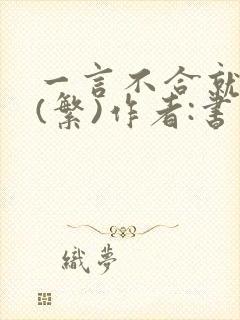 一言不合就
(繁)作者:書
織夢